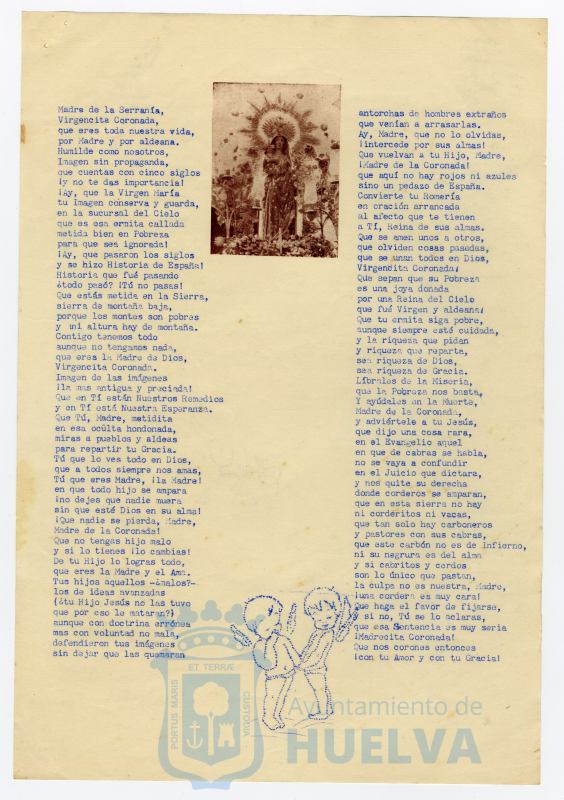 Madre de la Serranía,
Virgencita Coronada,
que eres toda nuestra vida,
por Madre y por aldeana.
Humilde como nosotros.
Imagen sin propaganda,
que cuentas con cinco siglos
¡y no te das importancia!
¡Ay, que la Virgen María
tu Imagen conserva y guarda,
en la sucursal del Cielo
que es esa ermita callada
metida bien en Pobreza
para que sea ignorada!
¡Ay, que pasaron los siglos
y se hizo Historia de España!
Historia que fué pasando
¿todo pasó? ¡Tú no pasas!
Que estás metida en la Sierra,
sierra de montaña baja,
porque los montes son pobres
y ni altura hay de montaña.
Contigo tenemos todo
aunque no tengamos nada,
que eres la Madre de Dios,
Virgencita Coronada.
Imagen de las imágenes
¡la mas antigua y preciada!
Que en Tí están Nuestros Remedios
y en Tí está Nuestra Esperanza.
Que Tú, Madre, metidita
en esa oculta hondonada,
miras a pueblos y aldeas
para repartir tu Gracia.
Tú que lo ves todo en Dios,
que a todos siempre nos amas,
Tú que eres Madre, ¡la Madre!
en que todo hijo se ampara
¡no dejes que nadie muera
sin que esté Dios en su alma!
¡Que nadie se pierda, Madre,
Madre de la Coronada!
Que no tengas hijo malo
y si lo tienes ¡lo cambias!
De tu Hijo lo logras todo,
que eres la Madre y el Ama.
Tus hijos aquellos -¿malos?-
los de ideas avanzadas
(¿tu Hijo Jesús no las tuvo
que por eso le mataran?)
aunque con doctrina errónea
mas con voluntad no mala,
defendieron tus imágenes
sin dejar que las quemaran
antorchas de hombres extraños
que venían a arrasarlas.
Ay, Madre, que no lo olvidas,
¡intercede por sus almas!
Que vuelvan a tu Hijo, Madre,
¡Madre de la Coronada!
que aquí no hay rojos ni azules
sino un pedazo de España.
Convierte tu Romería
en oración arrancada
al afecto que te tienen
a Tí, Reina de sus almas.
Que se amen unos a otros,
que olviden cosas pasadas,
que se unan todos en Dios,
Virgencita Coronada!
Que sepan que su Pobreza
es una joya donada
por una Reina del Cielo
que fué Virgen y aldeana!
Que tu ermita siga pobre,
aunque siempre esté cuidada,
y la riqueza que pidan
y riqueza que reparta,
sea riqueza de Dios,
sea riqueza de Gracia.
Líbrales de la Miseria,
que la Pobreza nos basta,
Y ayúdales en la Muerte,
Madre de la Coronada,
y adviértele a tu Jesús,
que dijo una cosa rara,
en el Evangelio aquel
en que de cabras se habla,
no se vaya a confundir
en el Juicio que dictara,
y nos quite su derecha
donde corderos se amparan,
que en esta sierra no hay
ni corderitos ni vacas,
que tan solo hay carboneros
y pastores con sus cabras,
que este carbón no es de infierno,
ni su negrura es del alma
y si cabritos y cerdos
son lo único que pastan,
la culpa no es nuestra, Madre,
¡una cordera es muy cara!
Que haga el favor de fijarse,
y si no, Tú se lo aclaras,
que esa Sentencia es muy seria
¡Madrecita Coronada!
Que nos corones entonces
¡con tu Amor y con tu Gracia!
PORTUS MARIS
ET TERRÆ
CUSTODIA
Ayuntamiento de
HUELVA